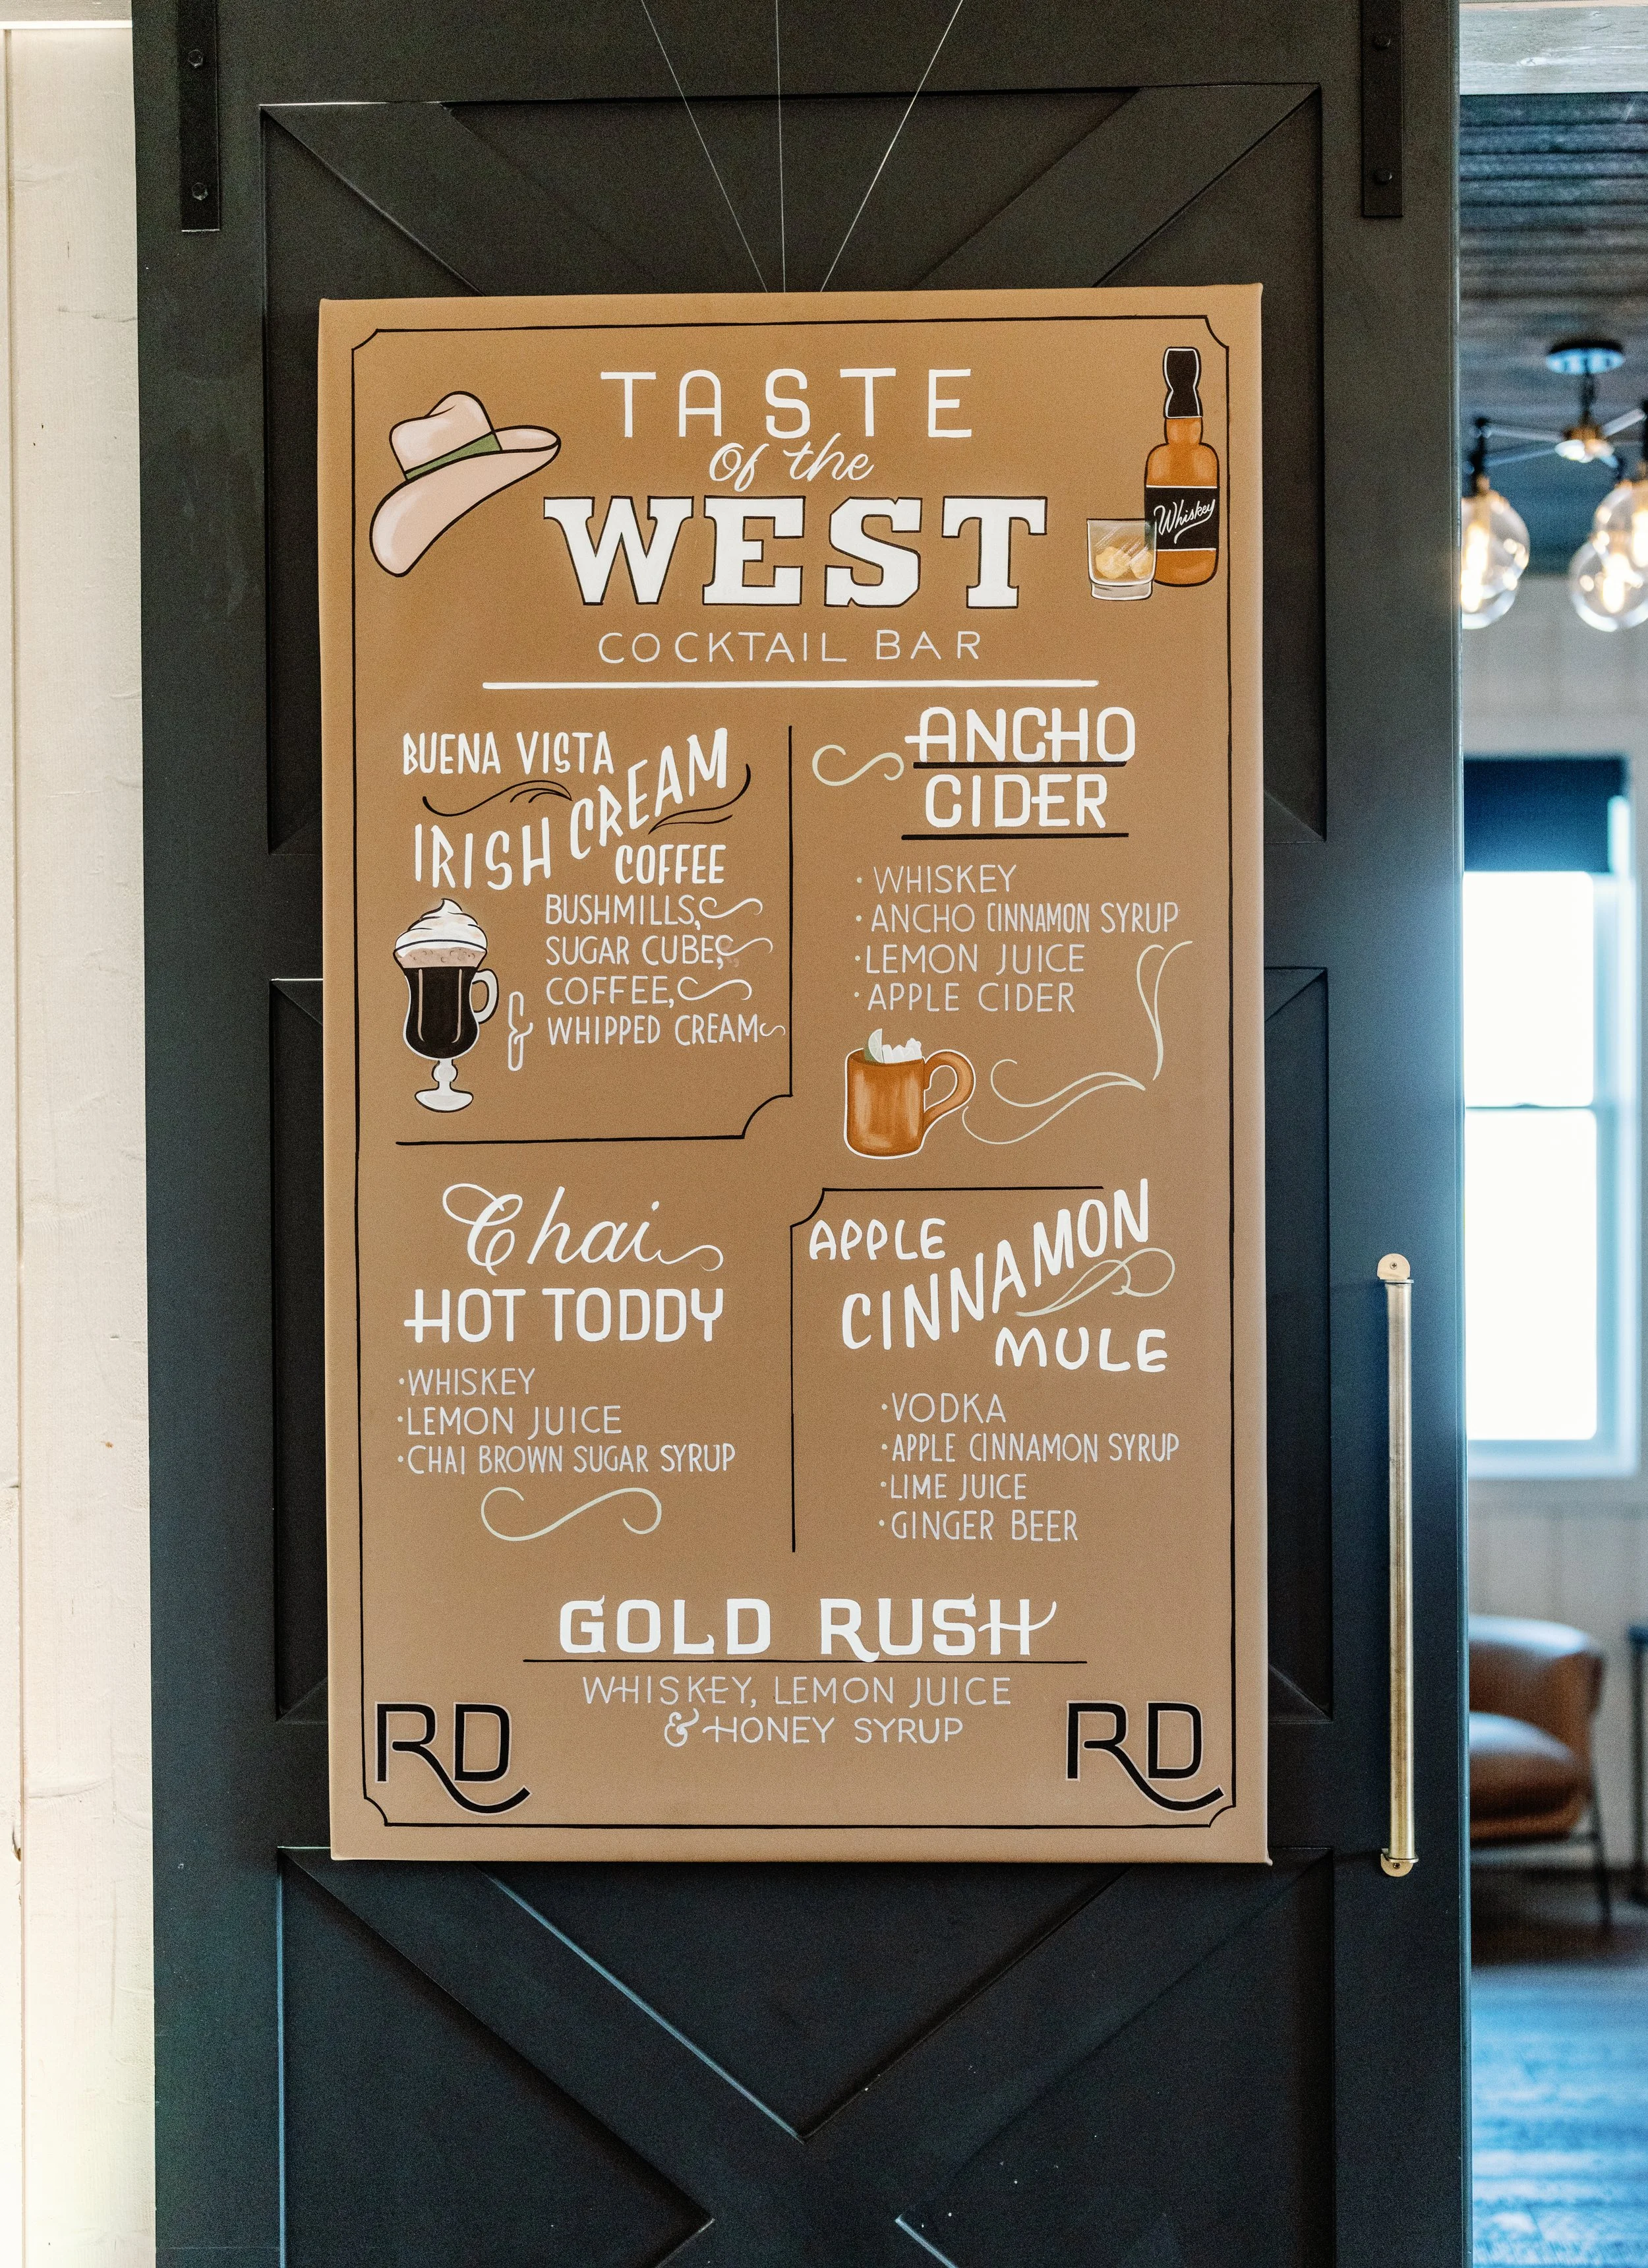 TASTE
of the
WEST
COCKTAIL BAR
Whiskey
BUENA VISTA
IRISH CREAM
COFFEE
BUSHMILLS,
SUGAR CUBES,
COFFEE,
& WHIPPED CREAM
ANCHO
CIDER
· WHISKEY
· ANCHO CINNAMON SYRUP
· LEMON JUICE
· APPLE CIDER
Chai
HOT TODDY
· WHISKEY
· LEMON JUICE
· CHAI BROWN SUGAR SYRUP
APPLE
CINNAMON
MULE
· VODKA
· APPLE CINNAMON SYRUP
· LIME JUICE
· GINGER BEER
GOLD RUSH
WHISKEY, LEMON JUICE
& HONEY SYRUP
RD
RD